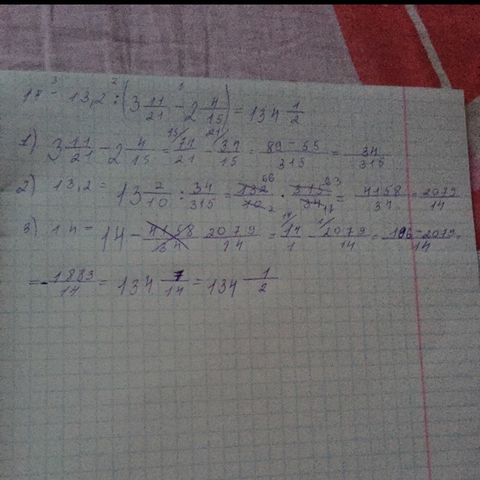 17 - 13,2 : (3 11/21 - 2 4/15) = 134 1/2
1) 3 11/21 - 2 4/15 = 74/21 - 34/15 = 89-55/315 = 34/315
2) 13,2 = 13 2/10 : 34/315 = 132/10 · 315/34 = 4158/34 = 2079/14
3) 14 = 14 - 4158/34 2079/14 = 14/1 - 2079/14 = 196-2079/14
= -1883/14 = 134 7/14 = 134 1/2